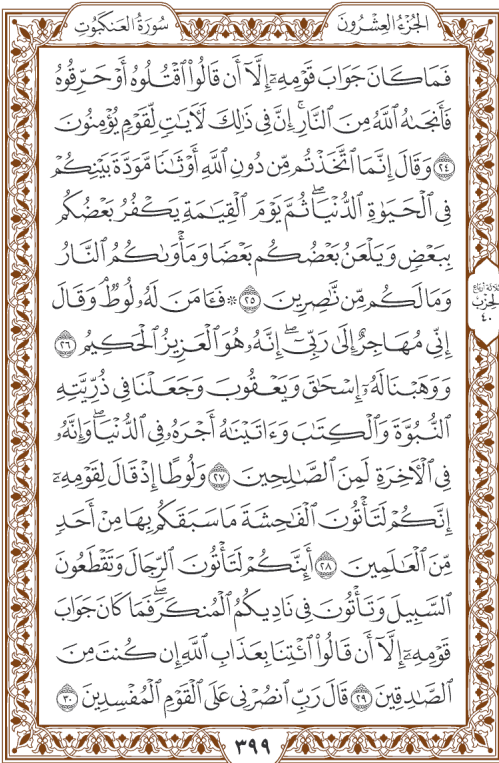 سُورَةُ العَنكَبُوتِ
الجُزْءُ العِشْرُونَ
فَمَا كَانَ جَوَابَ قَوْمِهِۦٓ إِلَّآ أَن قَالُوا۟ ٱقْتُلُوهُ أَوْ حَرِّقُوهُ
فَأَنجَىٰهُ ٱللَّهُ مِنَ ٱلنَّارِۚ إِنَّ فِى ذَٰلِكَ لَءَايَٰتٍ لِّقَوْمٍ يُؤْمِنُونَ
٢٤ وَقَالَ إِنَّمَا ٱتَّخَذْتُم مِّن دُونِ ٱللَّهِ أَوْثَٰنًا مَّوَدَّةَ بَيْنِكُمْ
فِى ٱلْحَيَوٰةِ ٱلدُّنْيَاۖ ثُمَّ يَوْمَ ٱلْقِيَٰمَةِ يَكْفُرُ بَعْضُكُم
بِبَعْضٍ وَيَلْعَنُ بَعْضُكُم بَعْضًا وَمَأْوَىٰكُمُ ٱلنَّارُ
وَمَا لَكُم مِّن نَّٰصِرِينَ ٢٥ ۞ فَـَٔامَنَ لَهُۥ لُوطٌۘ وَقَالَ
إِنِّى مُهَاجِرٌ إِلَىٰ رَبِّىٓۖ إِنَّهُۥ هُوَ ٱلْعَزِيزُ ٱلْحَكِيمُ ٢٦
وَوَهَبْنَا لَهُۥٓ إِسْحَٰقَ وَيَعْقُوبَ وَجَعَلْنَا فِى ذُرِّيَّتِهِ
ٱلنُّبُوَّةَ وَٱلْكِتَٰبَ وَءَاتَيْنَٰهُ أَجْرَهُۥ فِى ٱلدُّنْيَاۖ وَإِنَّهُۥ
فِى ٱلْءَاخِرَةِ لَمِنَ ٱلصَّٰلِحِينَ ٢٧ وَلُوطًا إِذْ قَالَ لِقَوْمِهِۦٓ
إِنَّكُمْ لَتَأْتُونَ ٱلْفَٰحِشَةَ مَا سَبَقَكُم بِهَا مِنْ أَحَدٍ
مِّنَ ٱلْعَٰلَمِينَ ٢٨ أَئِنَّكُمْ لَتَأْتُونَ ٱلرِّجَالَ وَتَقْطَعُونَ
ٱلسَّبِيلَ وَتَأْتُونَ فِى نَادِيكُمُ ٱلْمُنكَرَۖ فَمَا كَانَ جَوَابَ
قَوْمِهِۦٓ إِلَّآ أَن قَالُوا۟ ٱئْتِنَا بِعَذَابِ ٱللَّهِ إِن كُنتَ مِنَ
ٱلصَّٰدِقِينَ ٢٩ قَالَ رَبِّ ٱنصُرْنِى عَلَى ٱلْقَوْمِ ٱلْمُفْسِدِينَ ٣٠
ثلاثة أرباع
الحزب
٤٠
٣٩٩